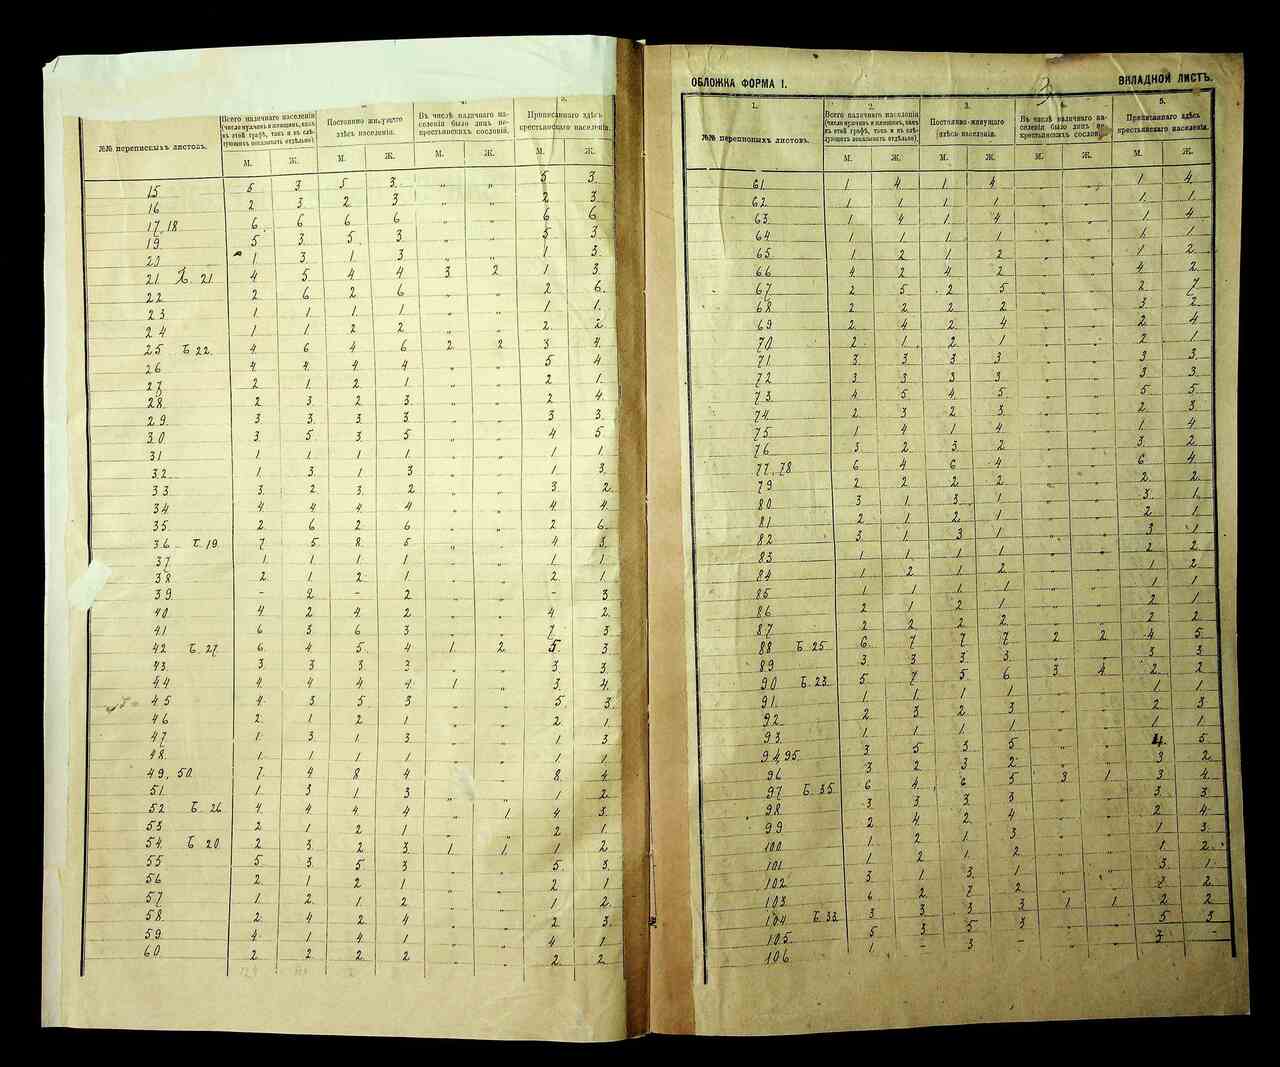 Всего наличнаго населенія (число мужчинъ и женщинъ, какъ въ этой графѣ, такъ и въ слѣдующихъ показывать отдѣльно).
Постоянно живущаго здѣсь населенія.
Въ числѣ наличнаго населенія было лицъ некрестьянскихъ сословій.
Приписаннаго здѣсь крестьянскаго населенія.
№№ переписныхъ листовъ.
М. Ж. М. Ж. М. Ж. М. Ж.
15 5 3 5 3 „ „ 5 3
16 2 3 2 3 „ „ 2 3
17,18 6 6 6 6 „ „ 6 6
19 5 3 5 3 „ „ 5 3
20 1 3 1 3 „ „ 1 3
21 Б. 21 4 5 4 4 3 2 1 3
22 2 6 2 6 „ „ 2 6
23 1 1 1 1 „ „ 1 1
24 1 1 2 2 „ „ 2 2
25 Б 22 4 6 4 6 2 2 3 4
26 4 4 4 4 „ „ 5 4
27 2 1 2 1 „ „ 2 1
28 2 3 2 3 „ „ 2 4
29 3 3 3 3 „ „ 3 3
30 3 5 3 5 „ „ 4 5
31 1 1 1 1 „ „ 1 1
32 1 3 1 3 „ „ 1 3
33 3 2 3 2 „ „ 3 2
34 4 4 4 4 „ „ 4 4
35 2 6 2 6 „ „ 2 6
36 Б. 19 7 5 8 5 „ „ 4 3
37 1 1 1 1 „ „ 1 1
38 2 1 2 1 „ „ 2 1
39 - 2 - 2 „ „ - 3
40 4 2 4 2 „ „ 4 2
41 6 3 6 3 „ „ 7 3
42 Б. 27 6 4 5 4 1 2 5 3
43 3 3 3 3 „ „ 3 3
44 4 4 4 4 1 „ 3 4
45 4 3 5 3 „ „ 5 3
46 2 1 2 1 „ „ 2 1
47 1 3 1 3 „ „ 1 3
48 1 1 1 1 „ „ 1 1
49, 50 7 4 8 4 „ „ 8 4
51 1 3 1 3 „ „ 1 2
52 Б. 26 4 4 4 4 „ 1 4 3
53 2 1 2 1 „ „ 2 1
54 Б 20 2 3 2 3 1 1 1 2
55 5 3 5 3 „ „ 5 3
56 2 1 2 1 „ „ 2 1
57 1 2 1 2 „ „ 1 2
58 2 4 2 4 „ „ 2 3
59 4 1 4 1 „ „ 4 1
60 2 2 2 2 „ „ 2 2
ОБЛОЖКА ФОРМА I.
3
ВКЛАДНОЙ ЛИСТЪ.
1. 2. 3. 4. 5.
№№ переписныхъ листовъ.
Всего наличнаго населенія (число мужчинъ и женщинъ, какъ въ этой графѣ, такъ и въ слѣдующихъ показывать отдѣльно).
Постоянно-живущаго здѣсь населенія.
Въ числѣ наличнаго населенія было лицъ некрестьянскихъ сословій.
Приписаннаго здѣсь крестьянскаго населенія.
М. Ж. М. Ж. М. Ж. М. Ж.
61 1 4 1 4 „ „ 1 4
62 1 1 1 1 „ „ 1 1
63 1 4 1 4 „ „ 1 4
64 1 1 1 1 „ „ 1 1
65 1 2 1 2 „ „ 1 2
66 4 2 4 2 „ „ 4 2
67 2 5 2 5 „ „ 2 7
68 2 2 2 2 „ „ 3 2
69 2 4 2 4 „ „ 2 4
70 2 1 2 1 „ „ 2 1
71 3 3 3 3 „ „ 3 3
72 3 3 3 3 „ „ 3 3
73 4 5 4 5 „ „ 5 5
74 2 3 2 3 „ „ 2 3
75 1 4 1 4 „ „ 1 4
76 3 2 3 2 „ „ 3 2
77,78 6 4 6 4 „ „ 6 4
79 2 2 2 2 „ „ 2 2
80 3 1 3 1 „ „ 3 1
81 2 1 2 1 „ „ 2 1
82 3 1 3 1 „ „ 3 1
83 1 1 1 1 „ „ 2 2
84 1 2 1 2 „ „ 1 2
85 1 1 1 1 „ „ 1 1
86 2 1 2 1 „ „ 2 1
87 2 2 2 2 „ „ 2 2
88 Б 25 6 7 7 7 2 2 4 5
89 3 3 3 3 „ „ 3 3
90 Б. 23 5 7 5 6 3 4 2 2
91 1 1 1 1 „ „ 1 1
92 2 3 2 3 „ „ 2 3
93 1 1 1 1 „ „ 1 1
94,95 3 5 3 5 „ „ 4 5
96 3 2 3 2 „ „ 3 2
97 Б. 35 6 4 6 5 3 1 3 4
98 3 3 3 3 „ „ 3 3
99 2 4 2 4 „ „ 2 4
100 1 2 1 3 „ „ 1 3
101 1 2 1 2 „ „ 1 2
102 3 1 3 1 „ „ 3 1
103 6 2 7 2 „ „ 7 2
104 Б. 33 3 3 3 3 1 1 2 2
105 5 3 5 3 „ „ 5 3
106 1 - 3 - „ „ 3 -